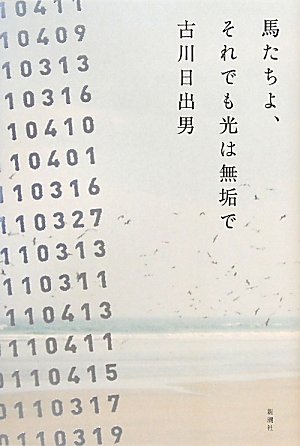 馬たちよ、
それでも光は無垢で
古川日出男
10411
10409
10313
110316
10410
110401
110316
110327
110313
110311
110413
0110411
0110415
0110317
0110319
新潮社